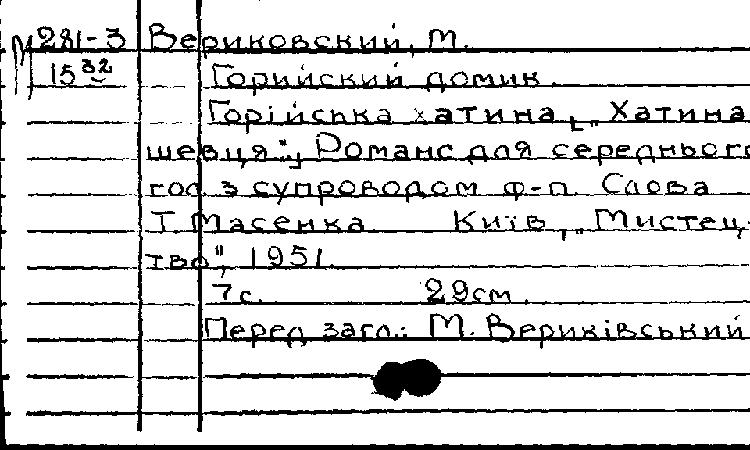 М281-3 Вериковский, М.
15 32 Горийский домик.
Горійська хатина, „Хатина
шевця". Романс для середнього
гол. з супроводом ф-п. Слова
Т. Масенка Київ, „Мистец-
тво", 1951.
7с. 29см.
Перед загл.: М. Вериківський